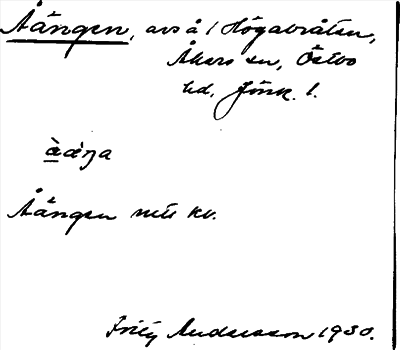 Åängen, avs å / Högabråten,
Åkers sn, Östbo
hd, Jönk. l.
Åängen nu kv.
Fritz Andersson 1930.